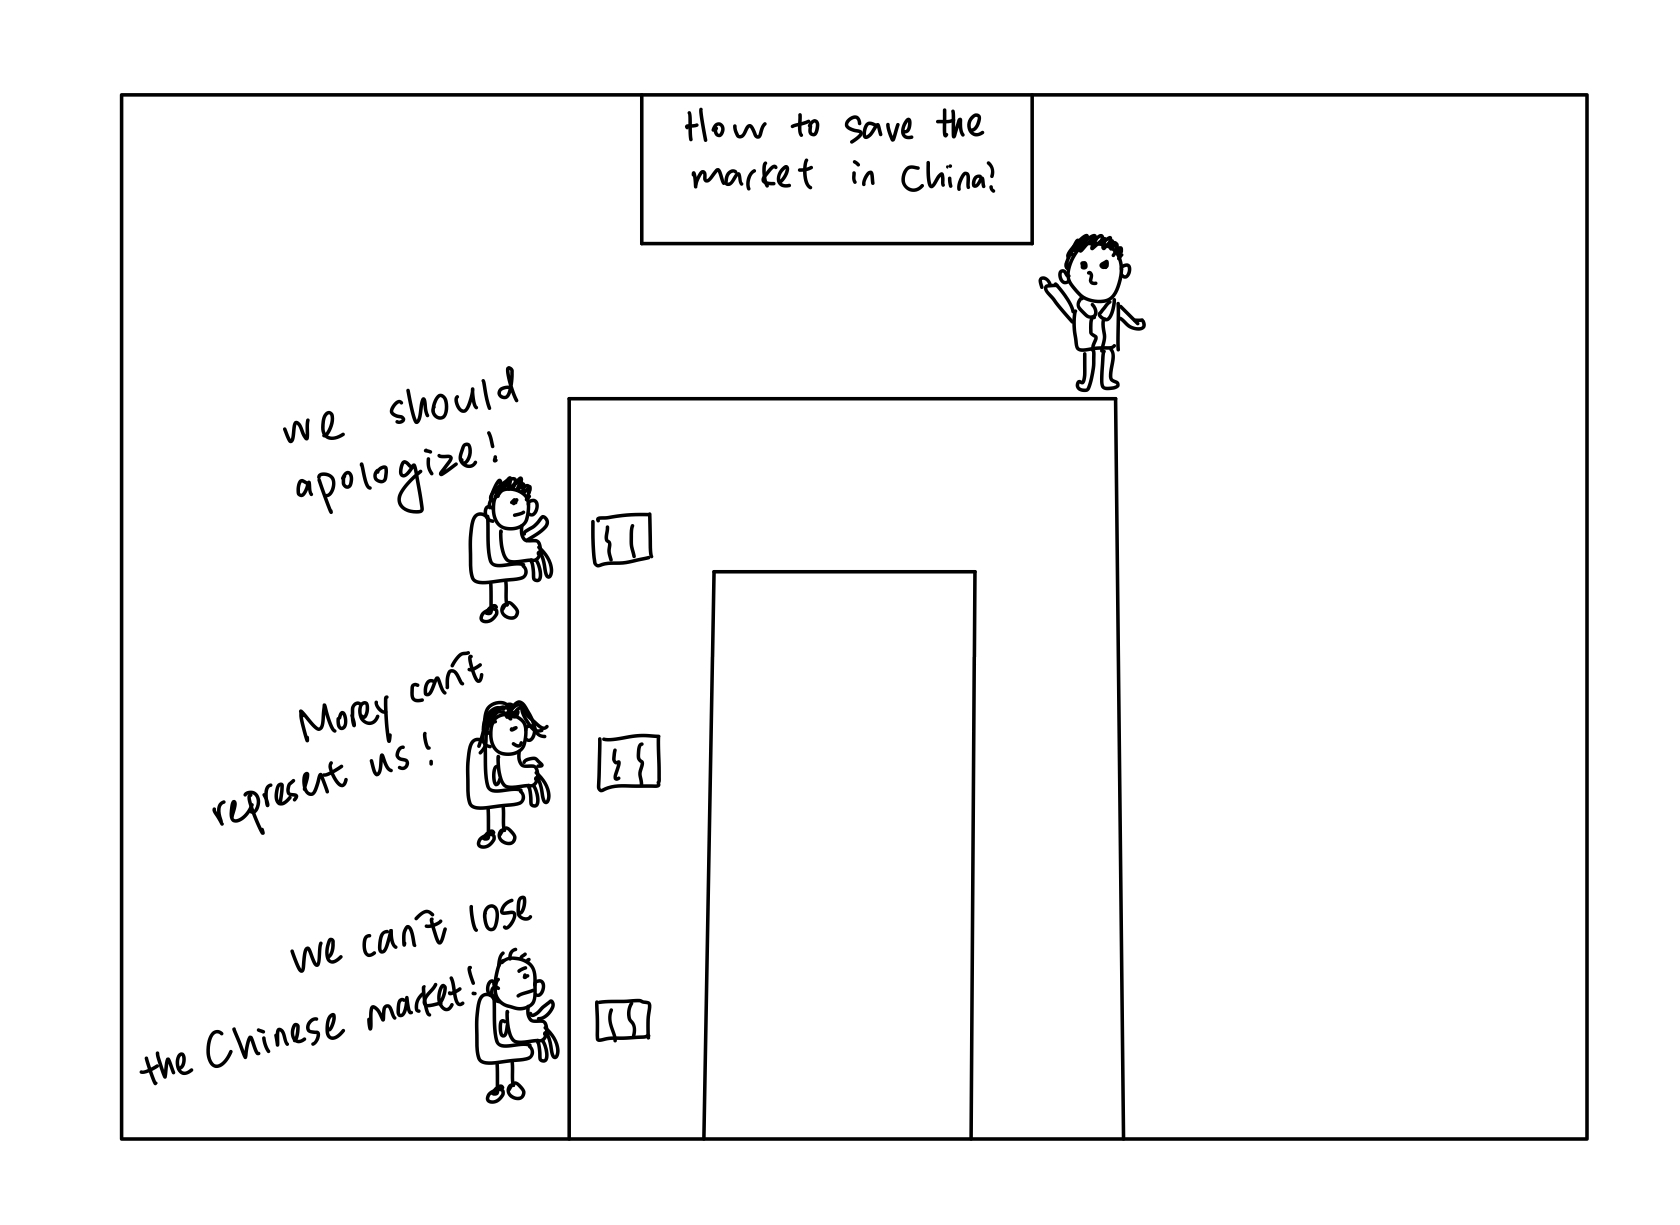 How to save the
market in China?
we should
apologize!
Morey can't
represent us!
we can't lose
the Chinese market!